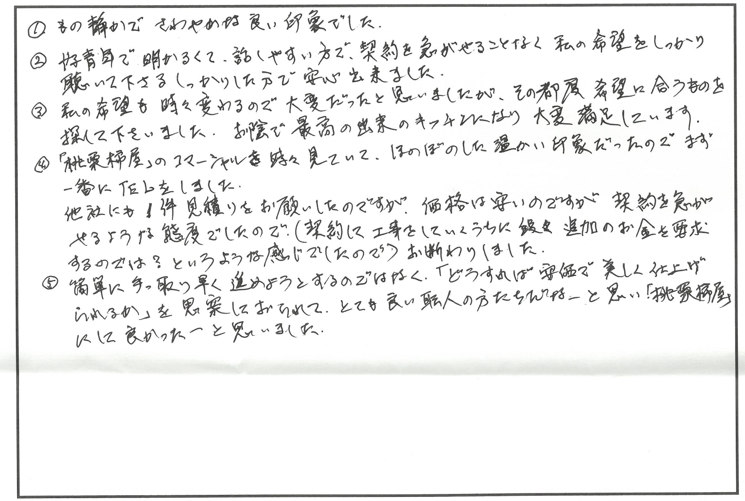 ① もの静かで さわやかな良い印象でした.
② 好青年で明かるくて、話しやすい方で、契約を急がせることなく 私の希望をしっかり
聴いて下さるしっかりした方で安心出来ました.
③ 私の希望も時々変わるので大変だったと思いましたが、その都度 希望に合うものを
探して下さいました. お陰で最高の出来のキッチンになり 大変満足しています.
④ 「桃栗柿屋」のコマーシャルを時々見ていて、ほのぼのした温かい印象だったので まず
一番に しました.
他社にも1件見積りをお願いしたのですが、価格は安いのですが 契約を急が
せるような態度でしたので、(契約して工事をしていくうちに 追加のお金を要求
するのでは?というような感じでしたので) お断わりしました.
⑤ 簡単に手っ取り早く進めようとするのではなく、「どうすれば安価で美しく仕上げ
られるか」を思案しておられて、とても良い職人の方たちだなーと思い「桃栗柿屋」
にして良かったーと思いました.